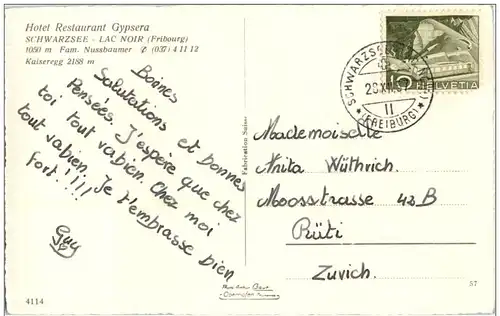 Hotel Restaurant Gypsera
SCHWARZSEE - LAC NOIR (Fribourg)
1050 m Fam. Nussbaumer ✆ (037) 4 11 12
Kaiseregg 2188 m
Bonnes
Salutations et bonnes
Pensées. J'espère que chez
toi tout vabien. Chez moi
tout vabien. Je t'embrasse bien
fort!!!!
Guy
4114
Fabrication Suisse
HELVETIA
10
SCHWARZSEE
II
(FREIBURG)
Mademoiselle
Anita Wüthrich.
Moosstrasse 42 B
Rüti
Zurich.
57